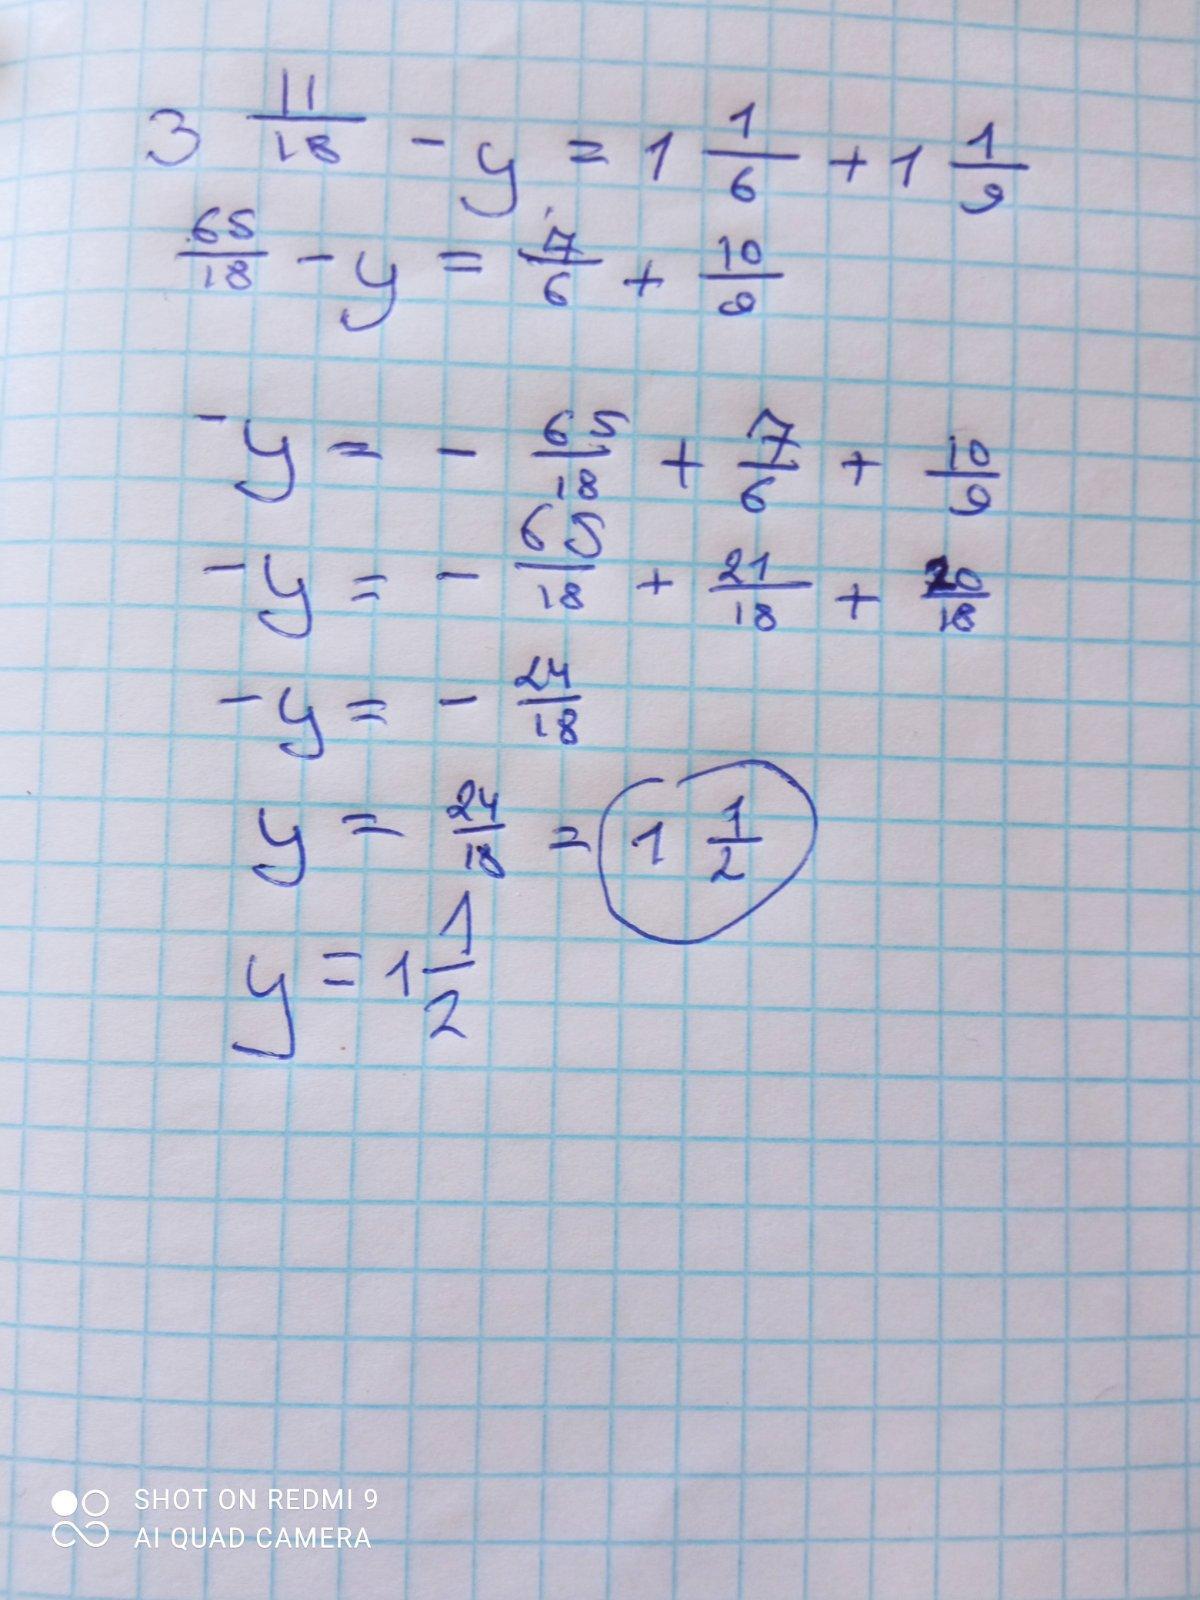 3 11/18 - y = 1 1/6 + 1 1/9
65/18 - y = 7/6 + 10/9
-y = - 65/18 + 7/6 + 10/9
-y = - 65/18 + 21/18 + 20/18
-y = - 24/18
y = 24/18 = 1 1/2
y = 1 1/2
SHOT ON REDMI 9
AI QUAD CAMERA